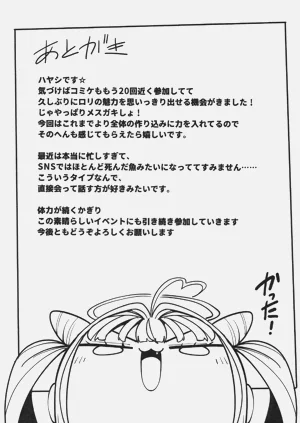 あとがき
ハヤシです☆
気づけばコミケももう20回近く参加してて
久しぶりにロリの魅力を思いっきり出せる機会がきました！
じゃやっぱりメスガキしょ！
今回はこれまでより全体の作り込みに力を入れてるので
そのへんも感じてもらえたら嬉しいです。
最近は本当に忙しすぎて、
SNSではほとんど死んだ魚みたいになっててすみません……
こういうタイプなんで、
直接会って話す方が好きみたいです。
体力が続くかぎり
この素晴らしいイベントにも引き続き参加していきます
今後ともどうぞよろしくお願いします
かった！